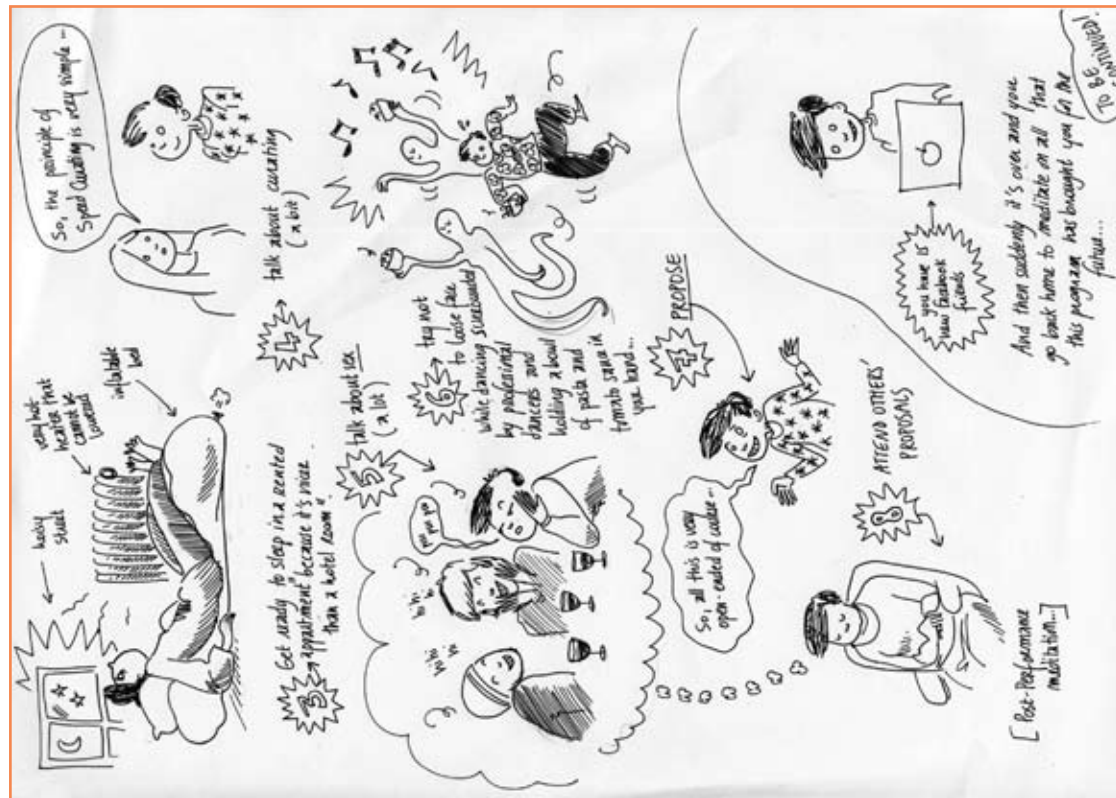 noisy
street
very hot
heater that
cannot be
lowered
inflatable
bed
3 → Get ready to sleep in a rented
"appartment" because it's nicer
than a hotel room".
So, the principle of
Speed Curating is very simple...
4 → talk about curating
(a bit)
5 → talk about sex
(a lot)
hi hi
6 → try not
to loose face
while dancing surrounded
by professional
dancers and
holding a bowl
of pasta and
tomato sauce in
your hand...
7 PROPOSE
So, all this is very
open-ended of course...
8 ATTEND OTHERS'
PROPOSALS
[Post-Performance
meditation...]
you have 15
new Facebook
friends
And then suddenly it's over and you
go back home to meditate on all that
this program has brought you for the
future...
TO BE
CONTINUED!